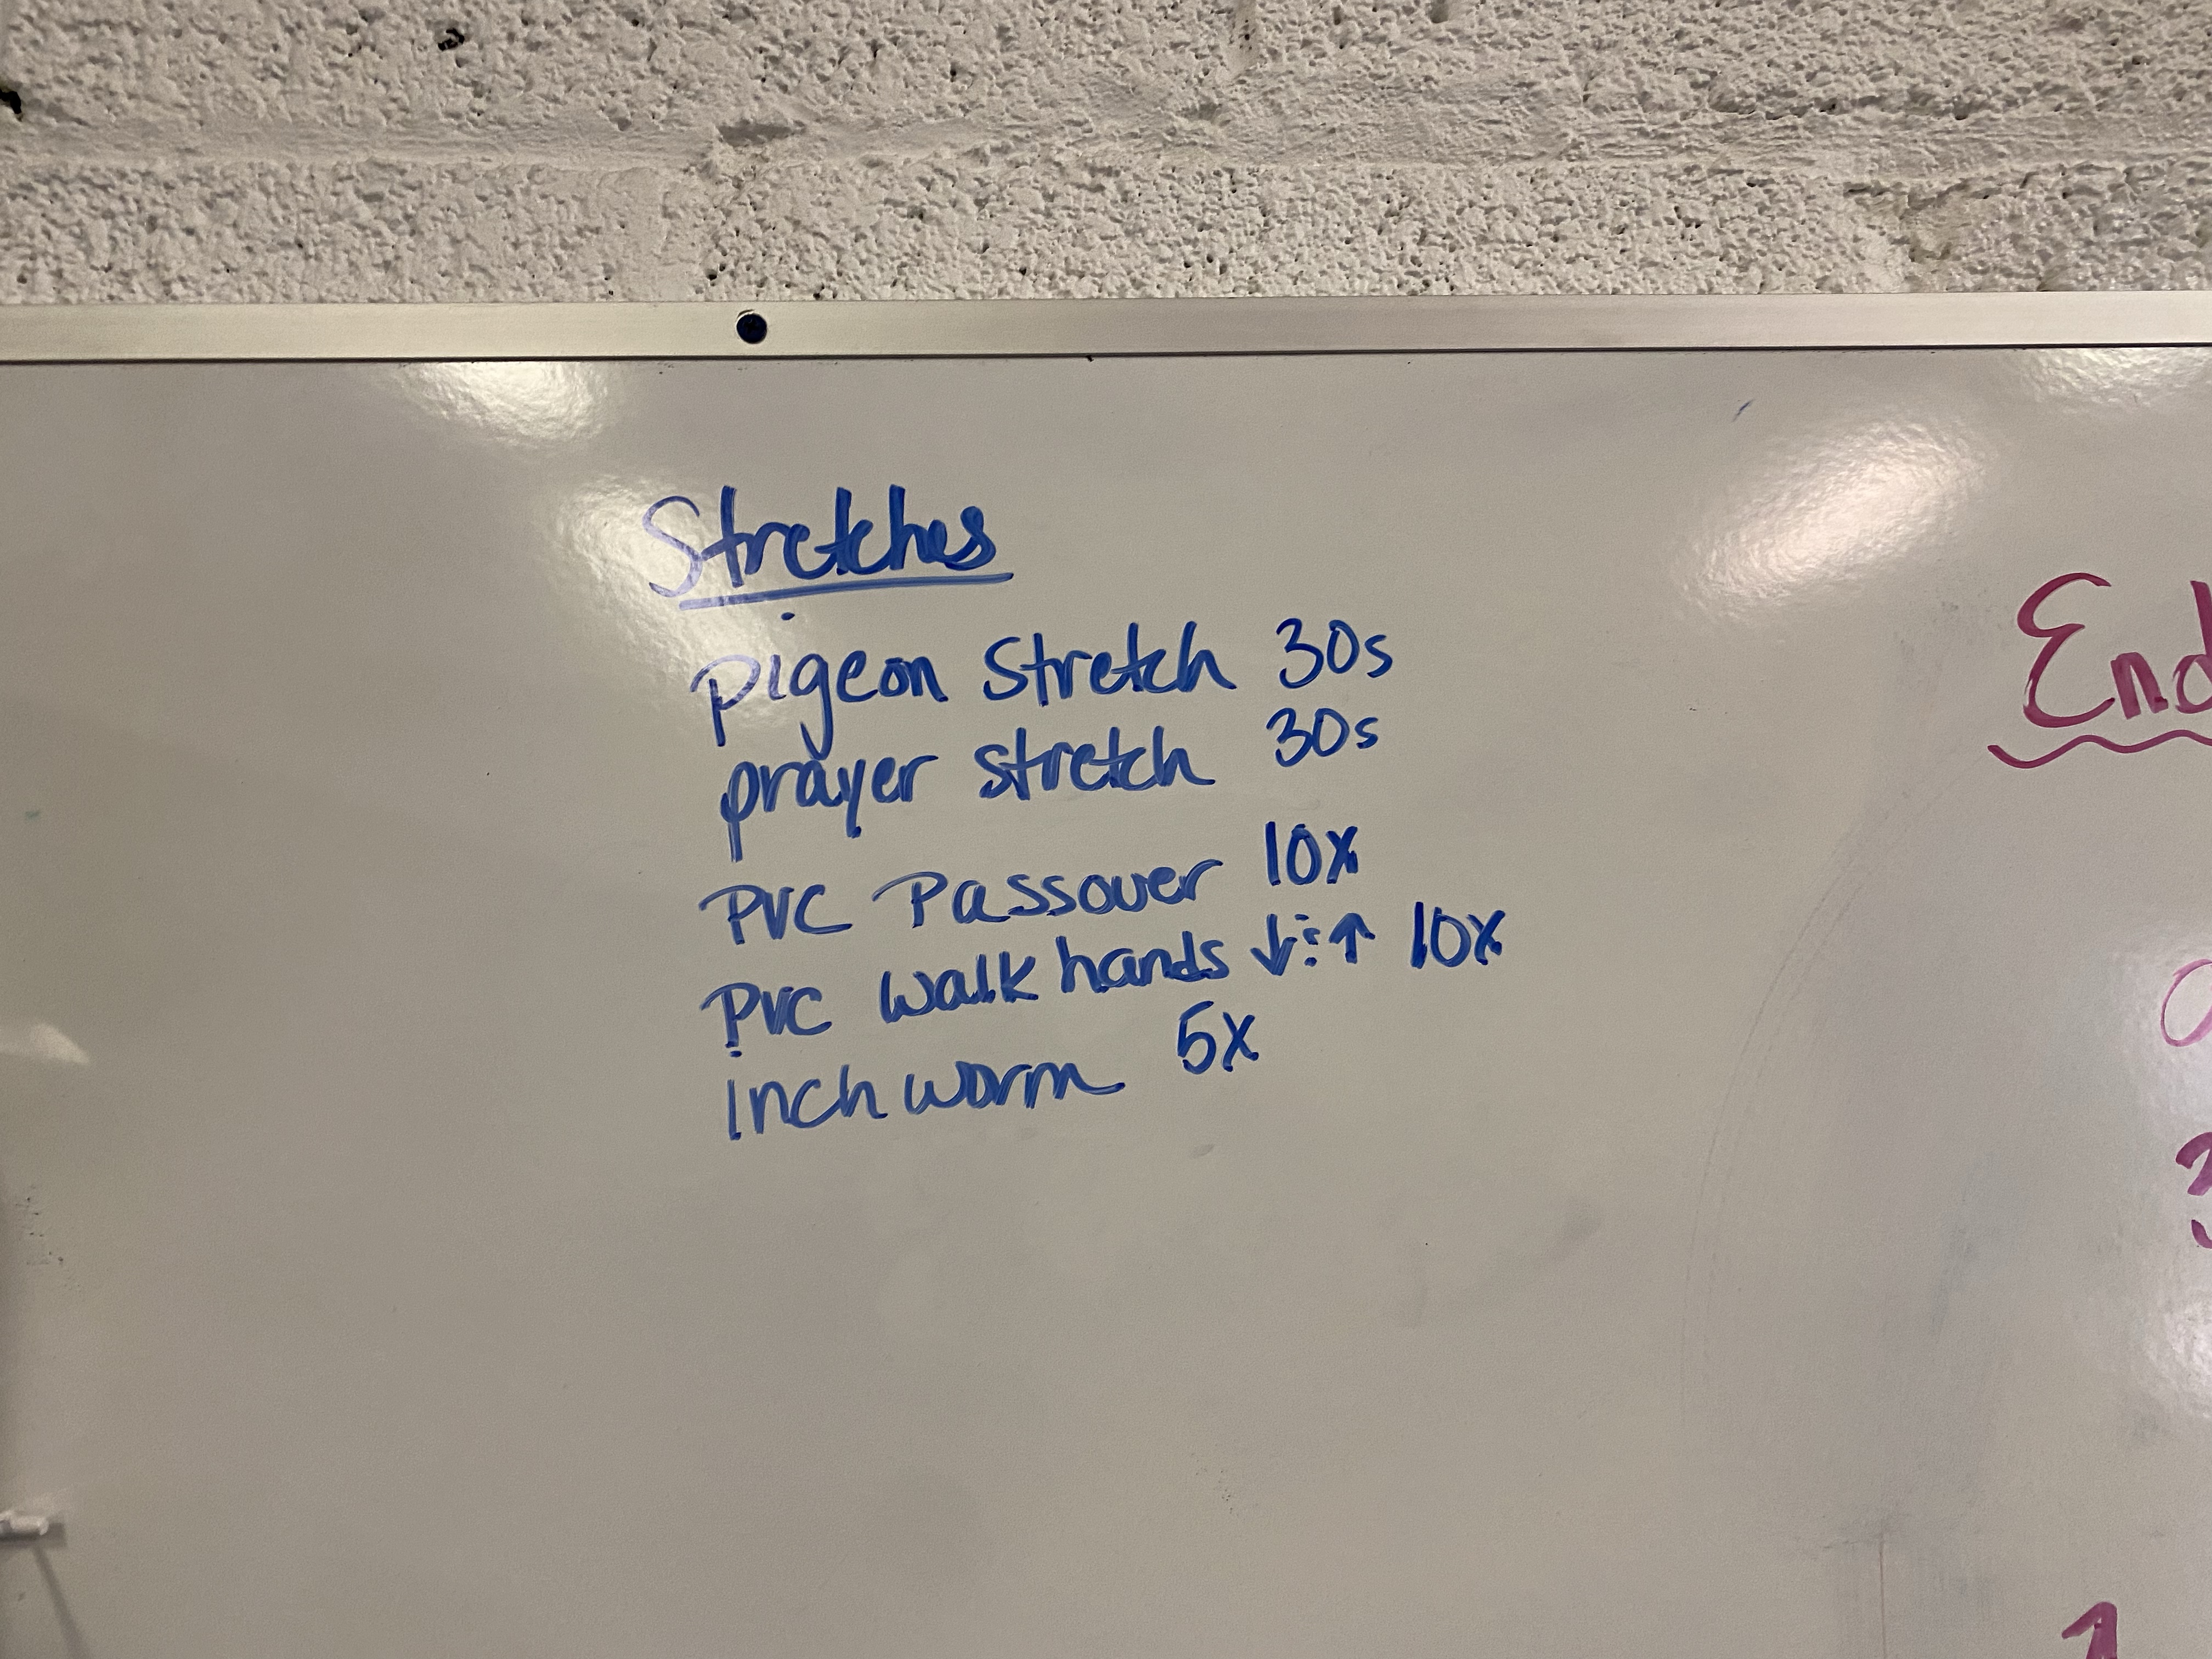 Stretches
pigeon stretch 30s
prayer stretch 30s
PVC Passover 10x
PVC walk hands ↓ : ↑ 10x
inch worm 5x
End